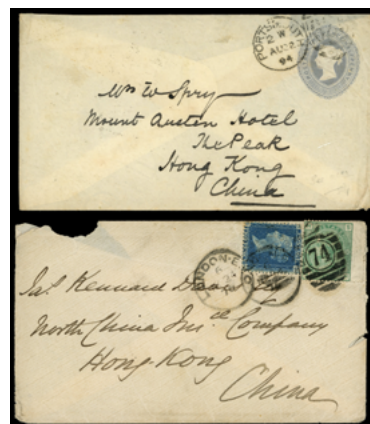 PORTSM
2 W
AU 27
94
Mrs W Spry
Mount Austin Hotel
The Peak
Hong Kong
China
LONDON-E
74
Jas. Kennard
North China Insce Company
Hong-Kong
China